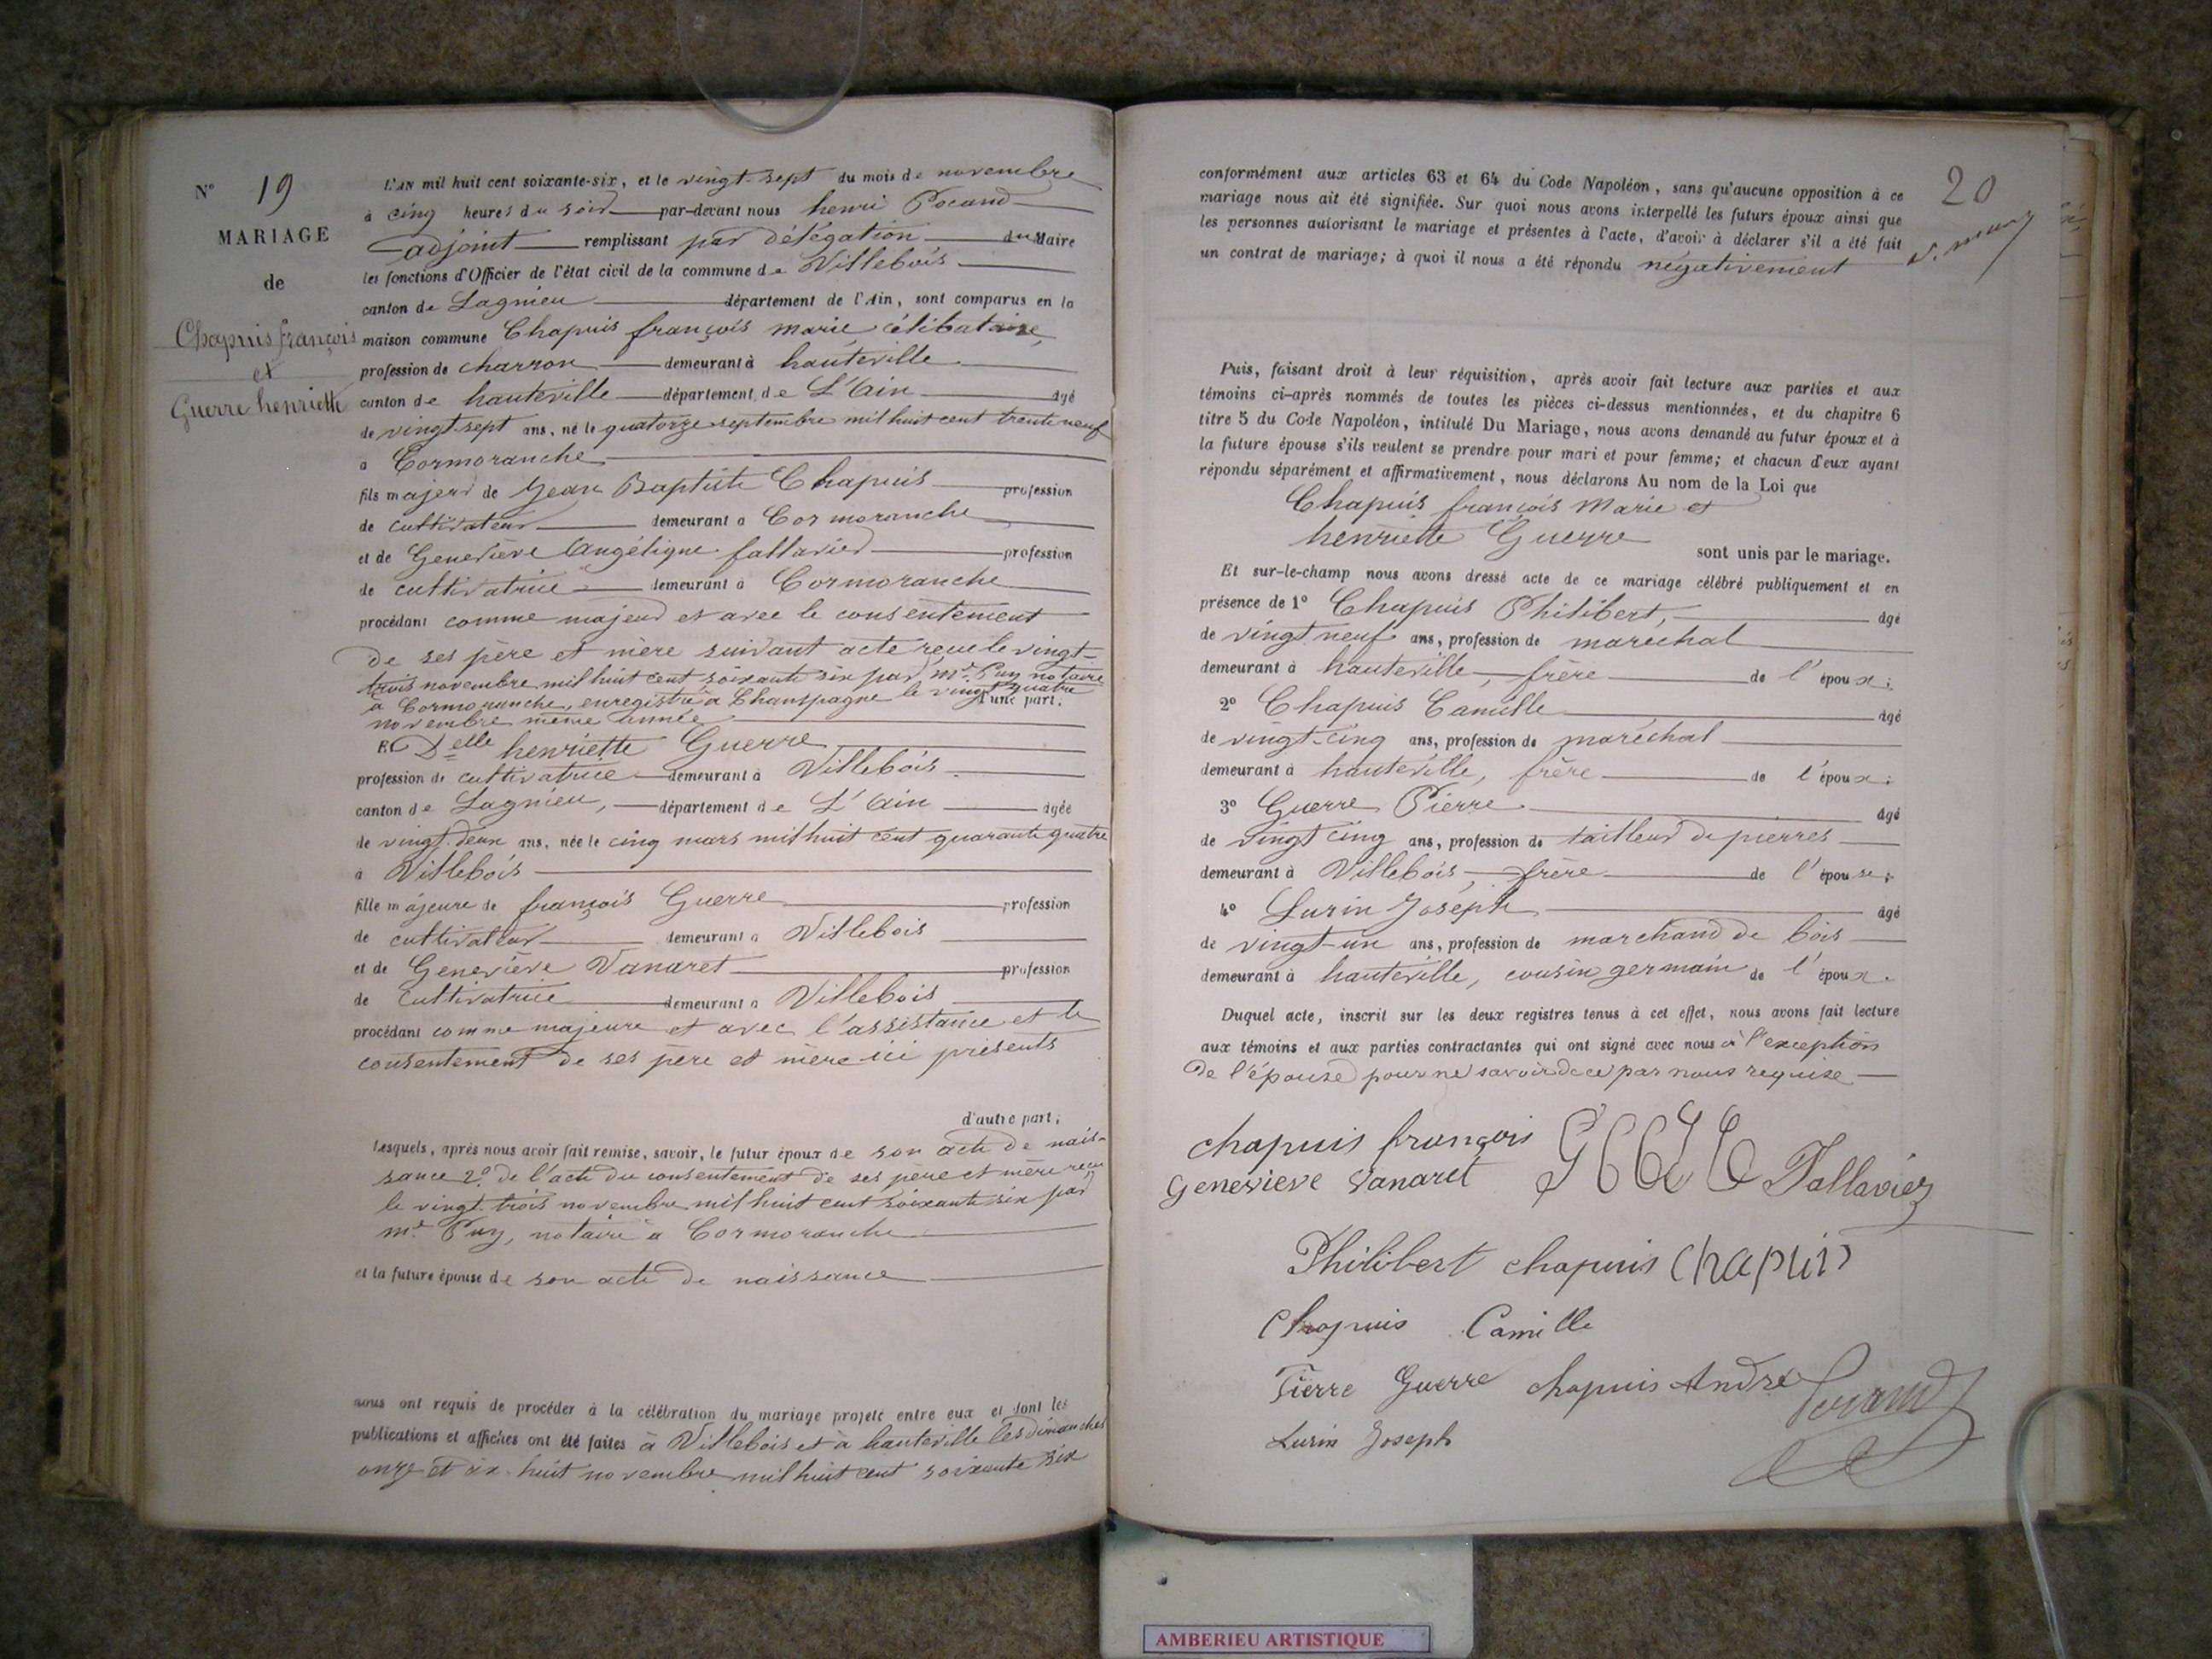 N° 19
MARIAGE
de
Chapuis françois
et
Guerre henriette
L'AN mil huit cent soixante-six, et le vingt-sept du mois de novembre
à cinq heures du soir par-devant nous henri Pocand
adjoint remplissant par délégation du Maire
les fonctions d'Officier de l'état civil de la commune de Villebois
canton de Lagnieu département de l'Ain, sont comparus en la
maison commune Chapuis françois marie, célibataire,
profession de charron demeurant à hauteville
canton de hauteville département de L'Ain âgé
de vingt-sept ans, né le quatorze septembre mil huit cent trente neuf
à Cormoranche
fils majeur de Jean Baptiste Chapuis profession
de cultivateur demeurant à Cormoranche
et de Geneviève Angélique fallavier profession
de cultivatrice demeurant à Cormoranche
procédant comme majeur et avec le consentement
de ses père et mère suivant acte reçu le vingt-
trois novembre mil huit cent soixante six par Me Puy notaire
à Cormoranche, enregistré à Champagne le vingt quatre
novembre même année d'une part.
Et Delle henriette Guerre
profession de cultivatrice demeurant à Villebois
canton de Lagnieu, département de L'Ain âgée
de vingt-deux ans, née le cinq mars mil huit cent quarante quatre
à Villebois
fille majeure de françois Guerre profession
de cultivateur demeurant à Villebois
et de Geneviève Vanaret profession
de cultivatrice demeurant à Villebois
procédant comme majeure et avec l'assistance et le
consentement de ses père et mère ici présents
d'autre part;
Lesquels, après nous avoir fait remise, savoir, le futur époux de son acte de nais-
sance 2° de l'acte du consentement de ses père et mère reçu
le vingt-trois novembre mil huit cent soixante six par
Me Puy, notaire à Cormoranche
et la future épouse de son acte de naissance
nous ont requis de procéder à la célébration du mariage projeté entre eux et dont les
publications et affiches ont été faites à Villebois et à hauteville les dimanches
onze et dix-huit novembre mil huit cent soixante six
20
conformément aux articles 63 et 64 du Code Napoléon, sans qu'aucune opposition à ce
mariage nous ait été signifiée. Sur quoi nous avons interpellé les futurs époux ainsi que
les personnes autorisant le mariage et présentes à l'acte, d'avoir à déclarer s'il a été fait
un contrat de mariage; à quoi il nous a été répondu négativement
Puis, faisant droit à leur réquisition, après avoir fait lecture aux parties et aux
témoins ci-après nommés de toutes les pièces ci-dessus mentionnées, et du chapitre 6
titre 5 du Code Napoléon, intitulé Du Mariage, nous avons demandé au futur époux et à
la future épouse s'ils veulent se prendre pour mari et pour femme; et chacun d'eux ayant
répondu séparément et affirmativement, nous déclarons Au nom de la Loi que
Chapuis françois Marie et
henriette Guerre
sont unis par le mariage.
Et sur-le-champ nous avons dressé acte de ce mariage célébré publiquement et en
présence de 1° Chapuis Philibert, âgé
de vingt neuf ans, profession de maréchal
demeurant à hauteville, frère de l'époux;
2° Chapuis Camille âgé
de vingt-cinq ans, profession de maréchal
demeurant à hauteville, frère de l'époux;
3° Guerre Pierre âgé
de vingt cinq ans, profession de tailleur de pierres
demeurant à Villebois, frère de l'épouse;
4° Lurin Joseph âgé
de vingt-un ans, profession de marchand de bois
demeurant à hauteville, cousin germain de l'époux.
Duquel acte, inscrit sur les deux registres tenus à cet effet, nous avons fait lecture
aux témoins et aux parties contractantes qui ont signé avec nous à l'exception
de l'épouse pour ne savoir de ce par nous requise
chapuis françois
Genevieve Vanaret
Fallavier
Philibert chapuis chapuis
Chapuis Camille
Pierre Guerre chapuis André Pocand
Lurin Joseph
AMBERIEU ARTISTIQUE